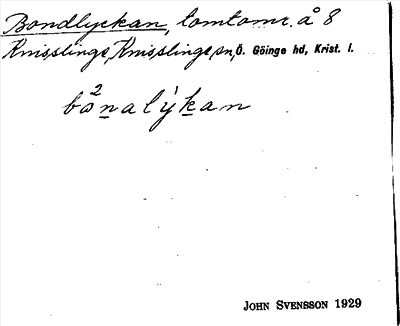 Bondlyckan, tomtomr. å 8
Knisslinge, Knisslinge sn, Ö. Göinge hd, Krist. l.
bò2nalýkan
JOHN SVENSSON 1929